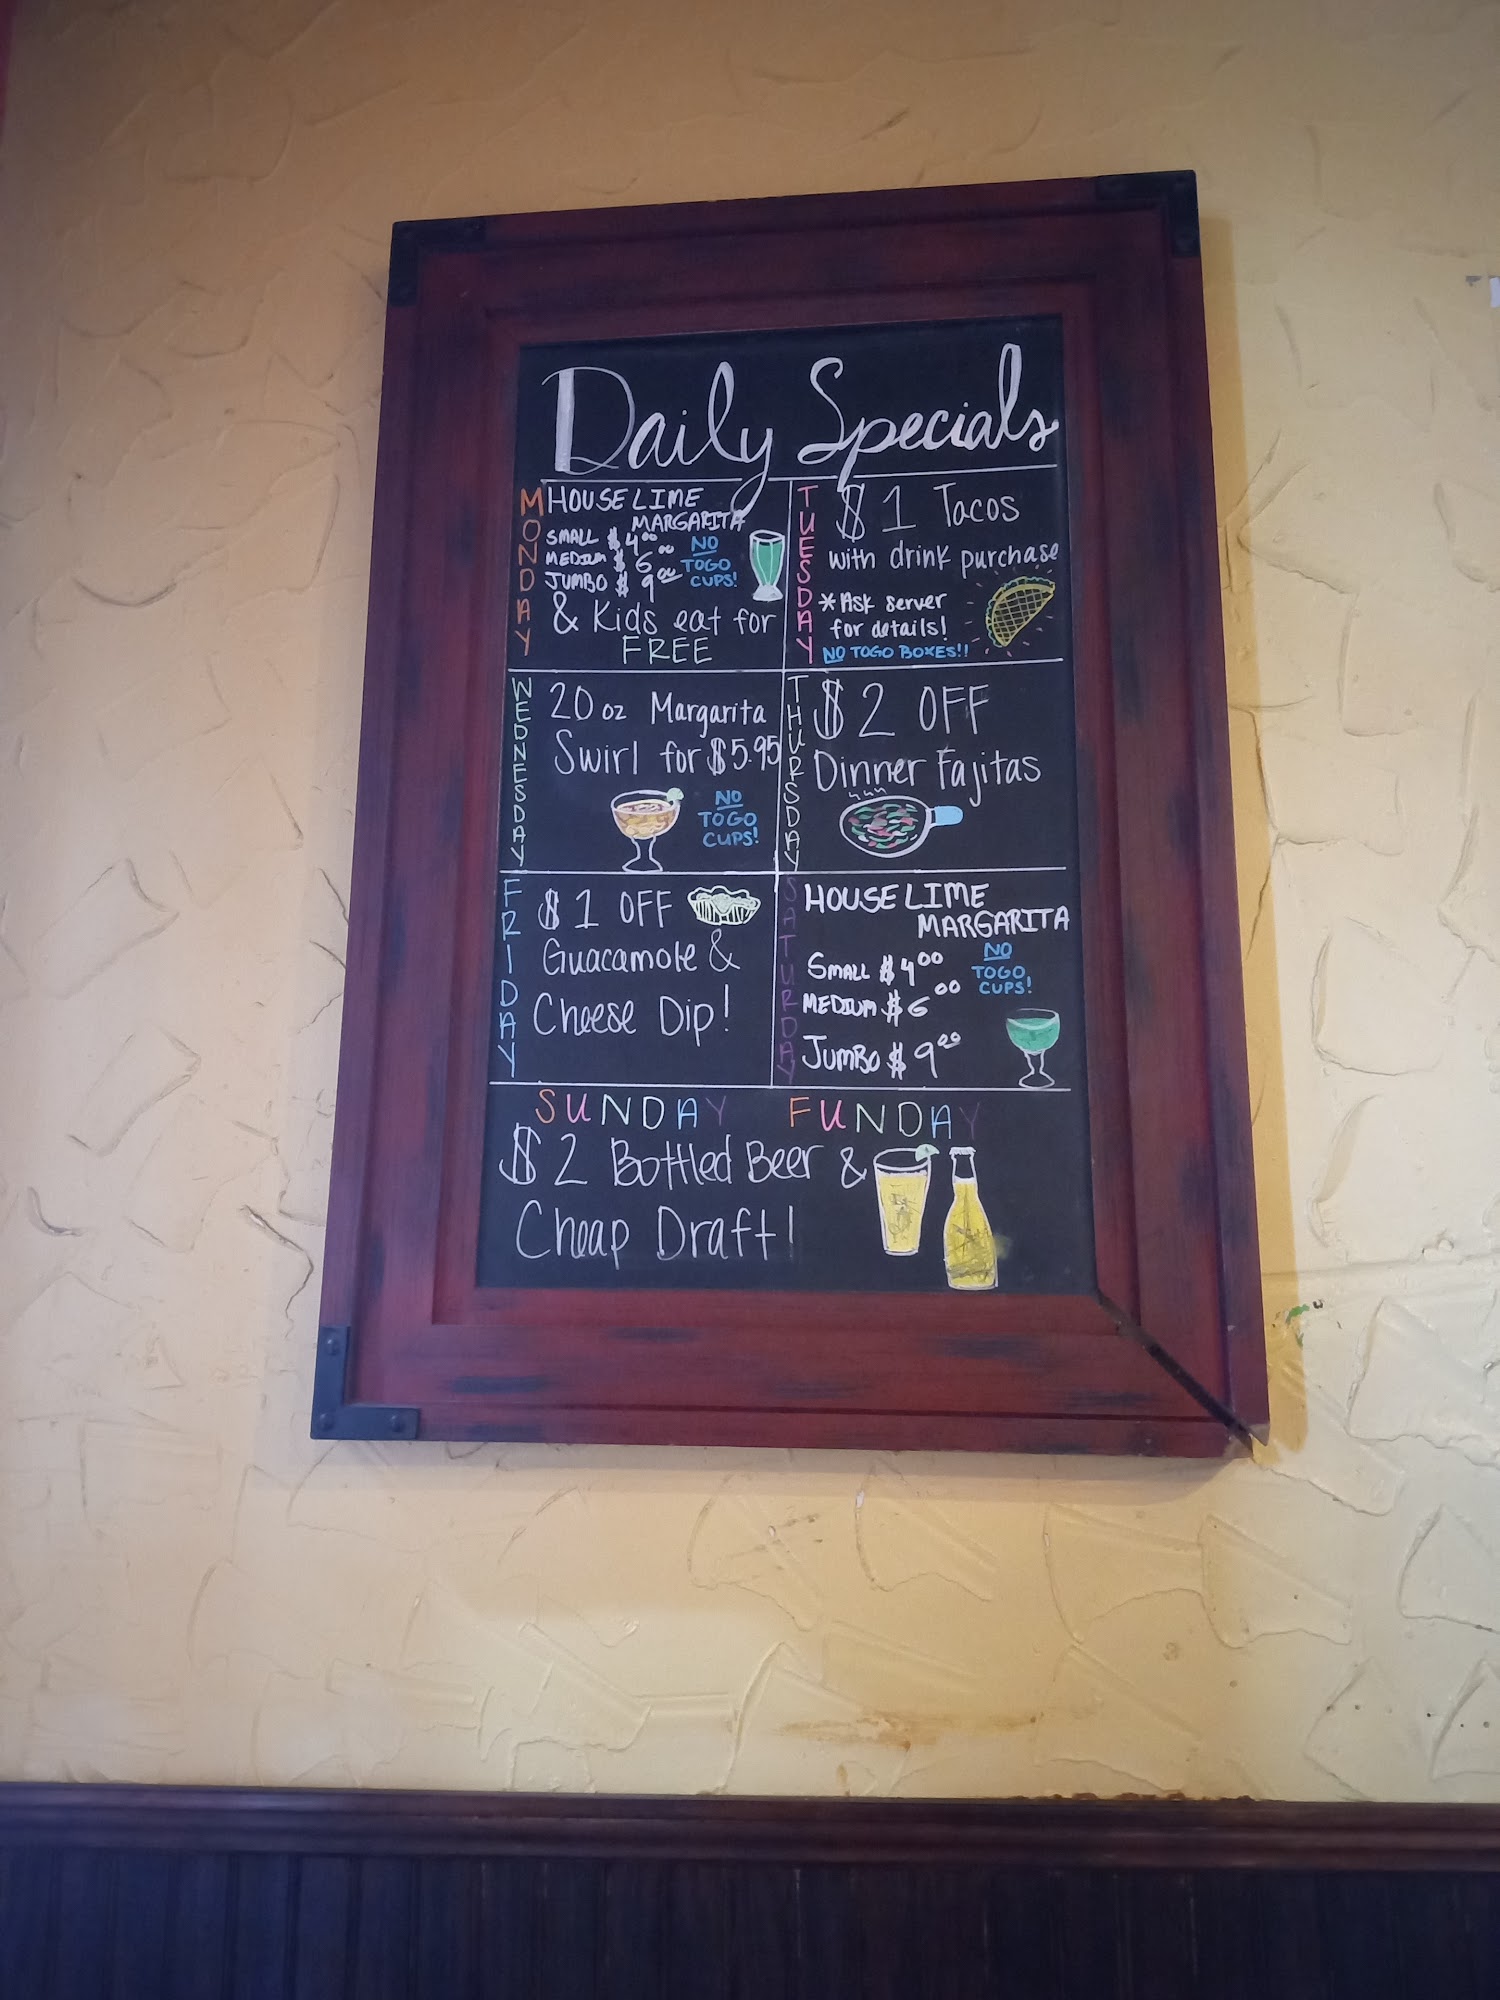 Daily Specials
MONDAY
HOUSE LIME
MARGARITA
SMALL $4.00
MEDIUM $6.00
JUMBO $9.00
NO
TOGO
CUPS!
& Kids eat for
FREE
TUESDAY
$1 Tacos
with drink purchase
*Ask server
for details!
NO TOGO BOXES!!
WEDNESDAY
20 oz Margarita
Swirl for $5.95
NO
TOGO
CUPS!
THURSDAY
$2 OFF
Dinner Fajitas
FRIDAY
$1 OFF
Guacamole &
Cheese Dip!
SATURDAY
HOUSE LIME
MARGARITA
SMALL $4.00
MEDIUM $6.00
JUMBO $9.00
NO
TOGO
CUPS!
SUNDAY FUNDAY
$2 Bottled Beer &
Cheap Draft!